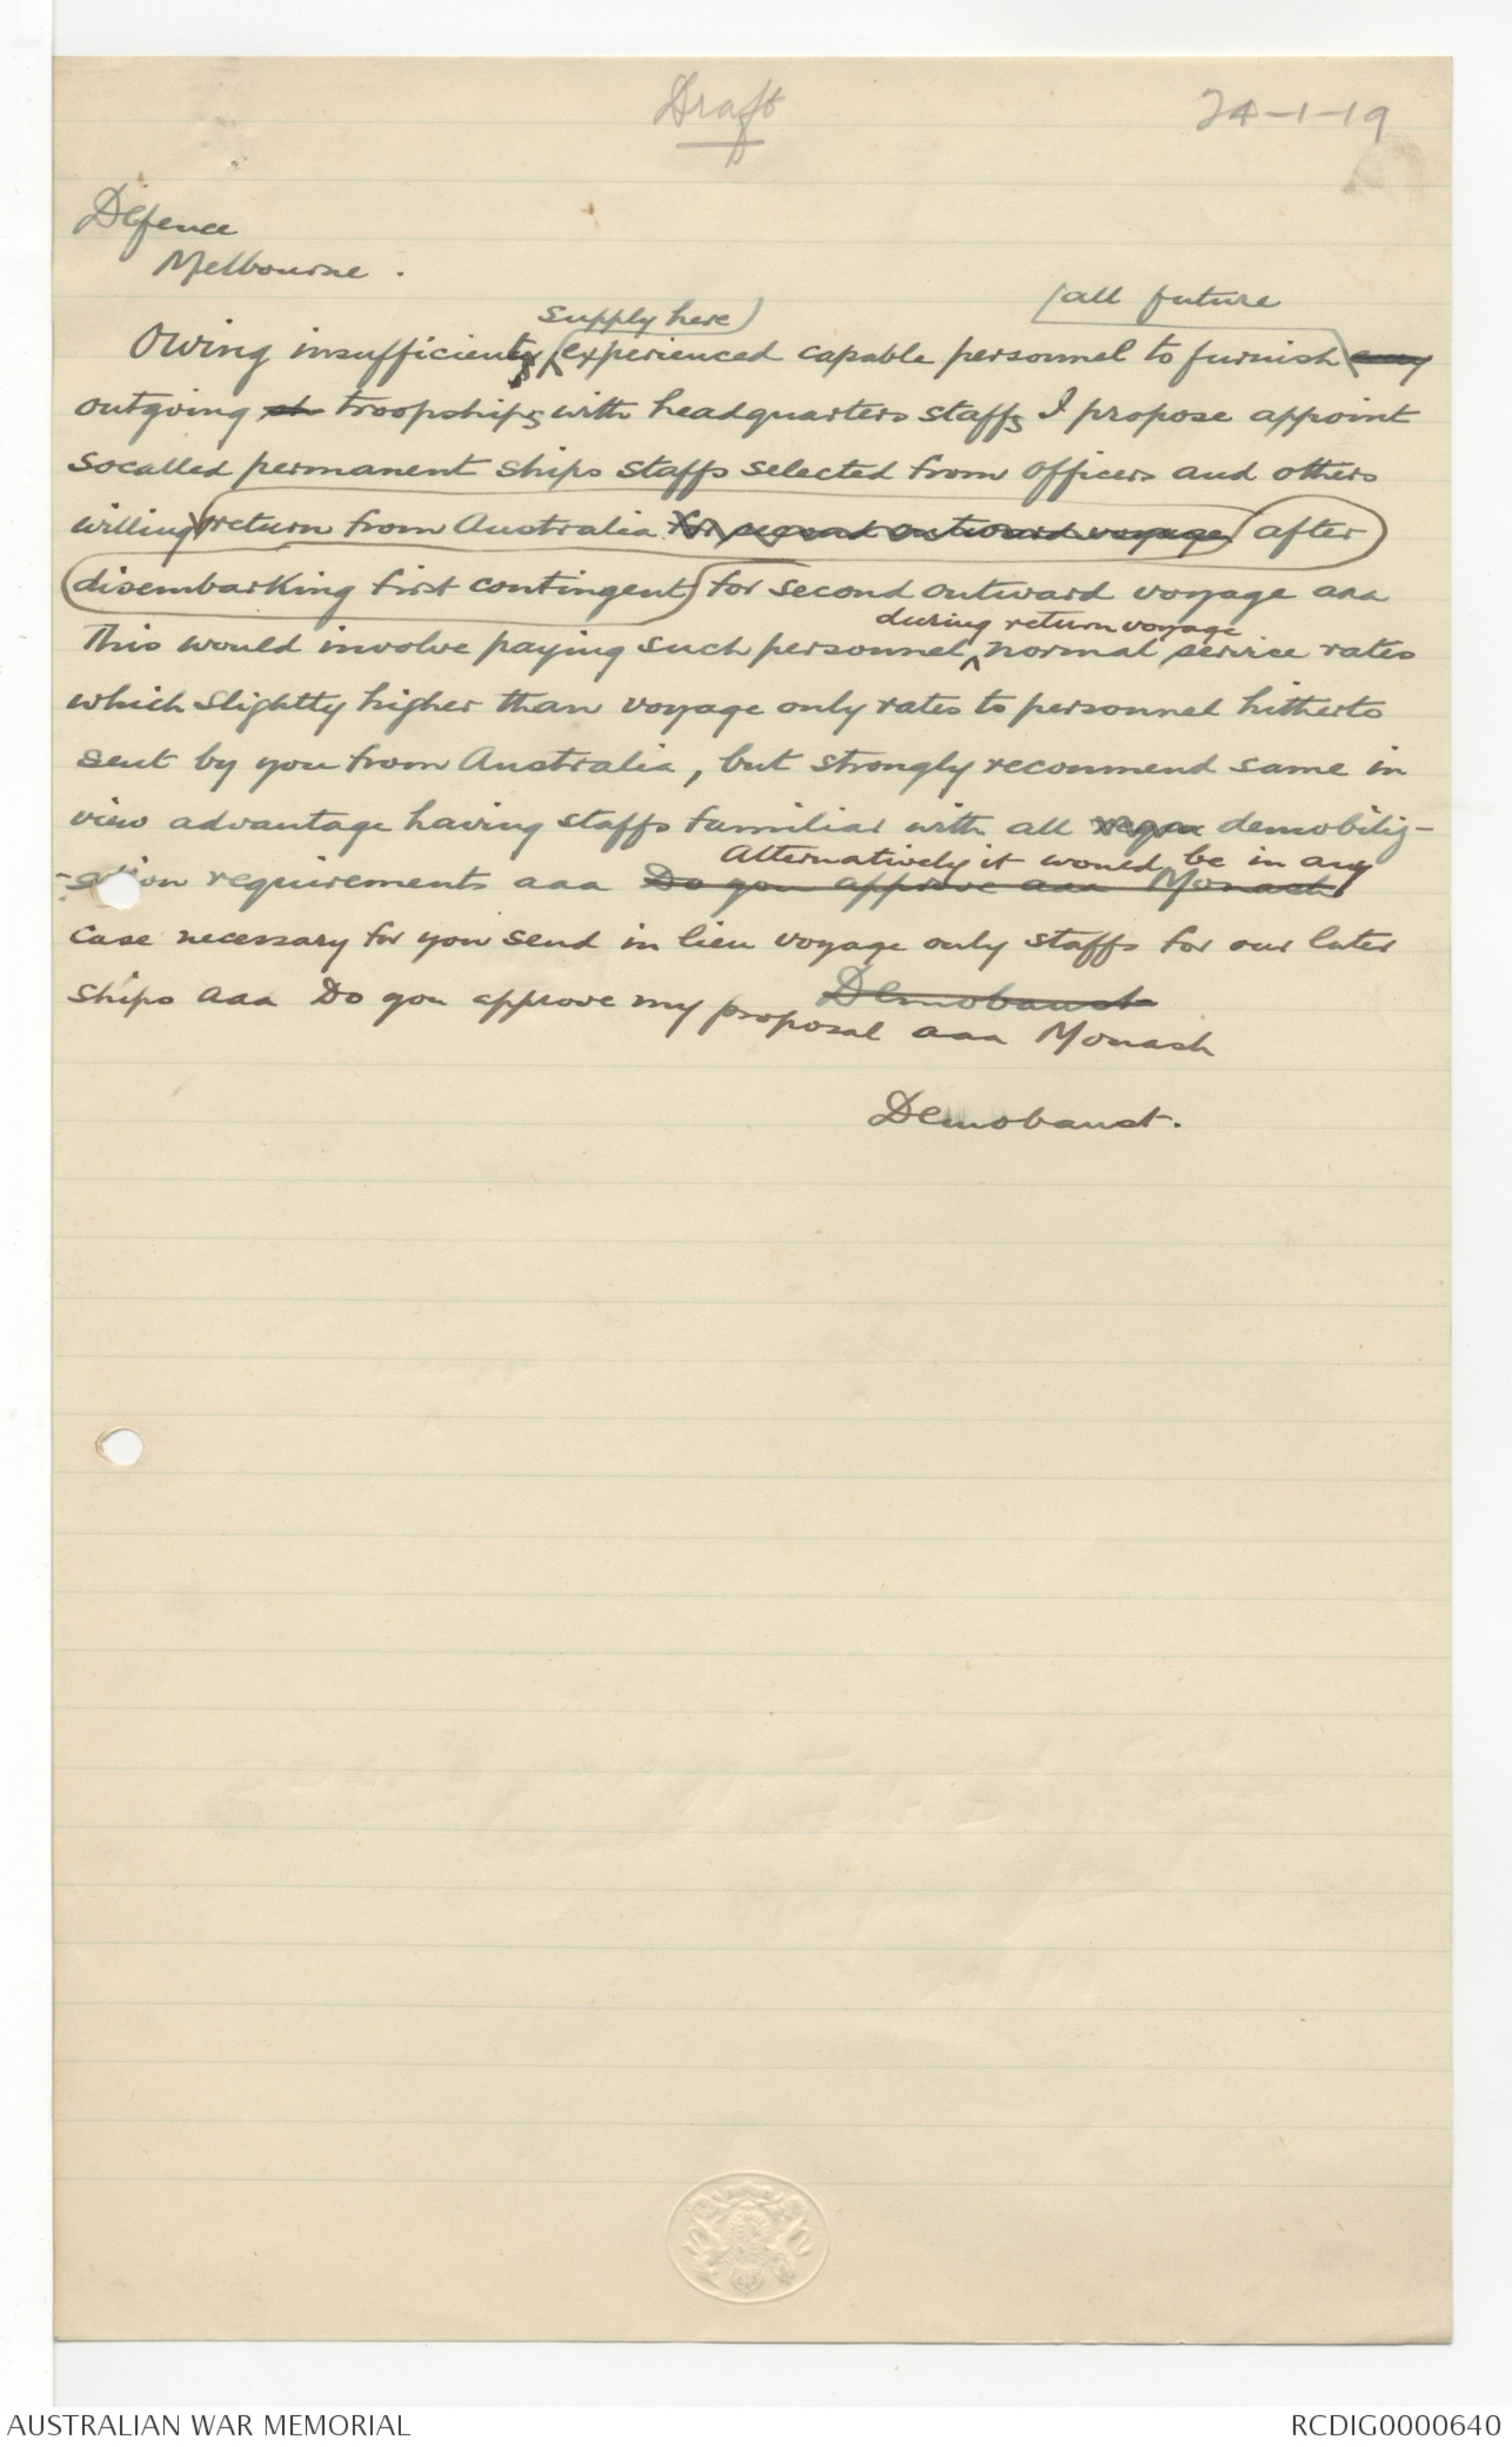 Draft
24-1-19
Defence
Melbourne .
supply here) (all future
Owing insufficient experienced capable personnel to furnish any
outgoing sh troopships with headquarters staffs I propose appoint
socalled permanent ships staffs selected from officers and others
willing return from Australia for second outward voyage after
disembarking first contingent for second outward voyage aaa
during return voyage
This would involve paying such personnel normal service rates
which slightly higher than voyage only rates to personnel hitherto
sent by you from Australia, but strongly recommend same in
view advantage having staffs familiar with all demobiliz-
Alternatively it would be in any
-ation requirements aaa Do you approve aaa Monash
case necessary for you send in lieu voyage only staffs for our later
ships aaa Do you approve my proposal aaa Monash
Demobaust
Demobaust.
AUSTRALIAN WAR MEMORIAL
RCDIG0000640